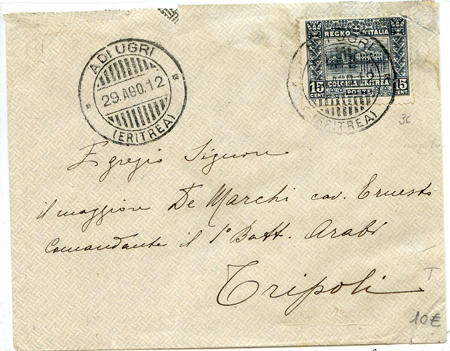 ADI UGRI
29.AGO.12
(ERITREA)
ADI UGRI
REGNO D'ITALIA
15 COLONIA ERITREA 15
CENT POSTE CENT
(ERITREA)
Egregio Signore
il maggiore De Marchi cav. Ernesto
Comandante il 1° Batt. Arabi
Tripoli
T
10€